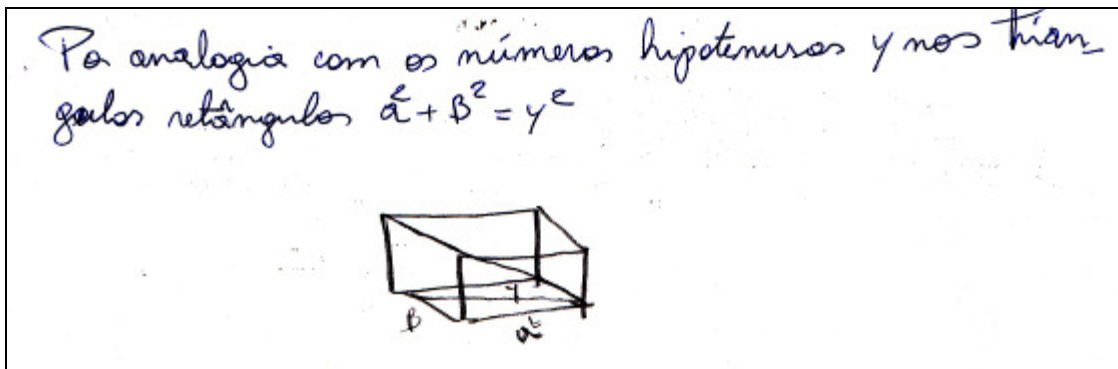 Pa analogia com os números hipotenusas y nos trian_
gulos retângulos a² + B² = y²
y
B
a²